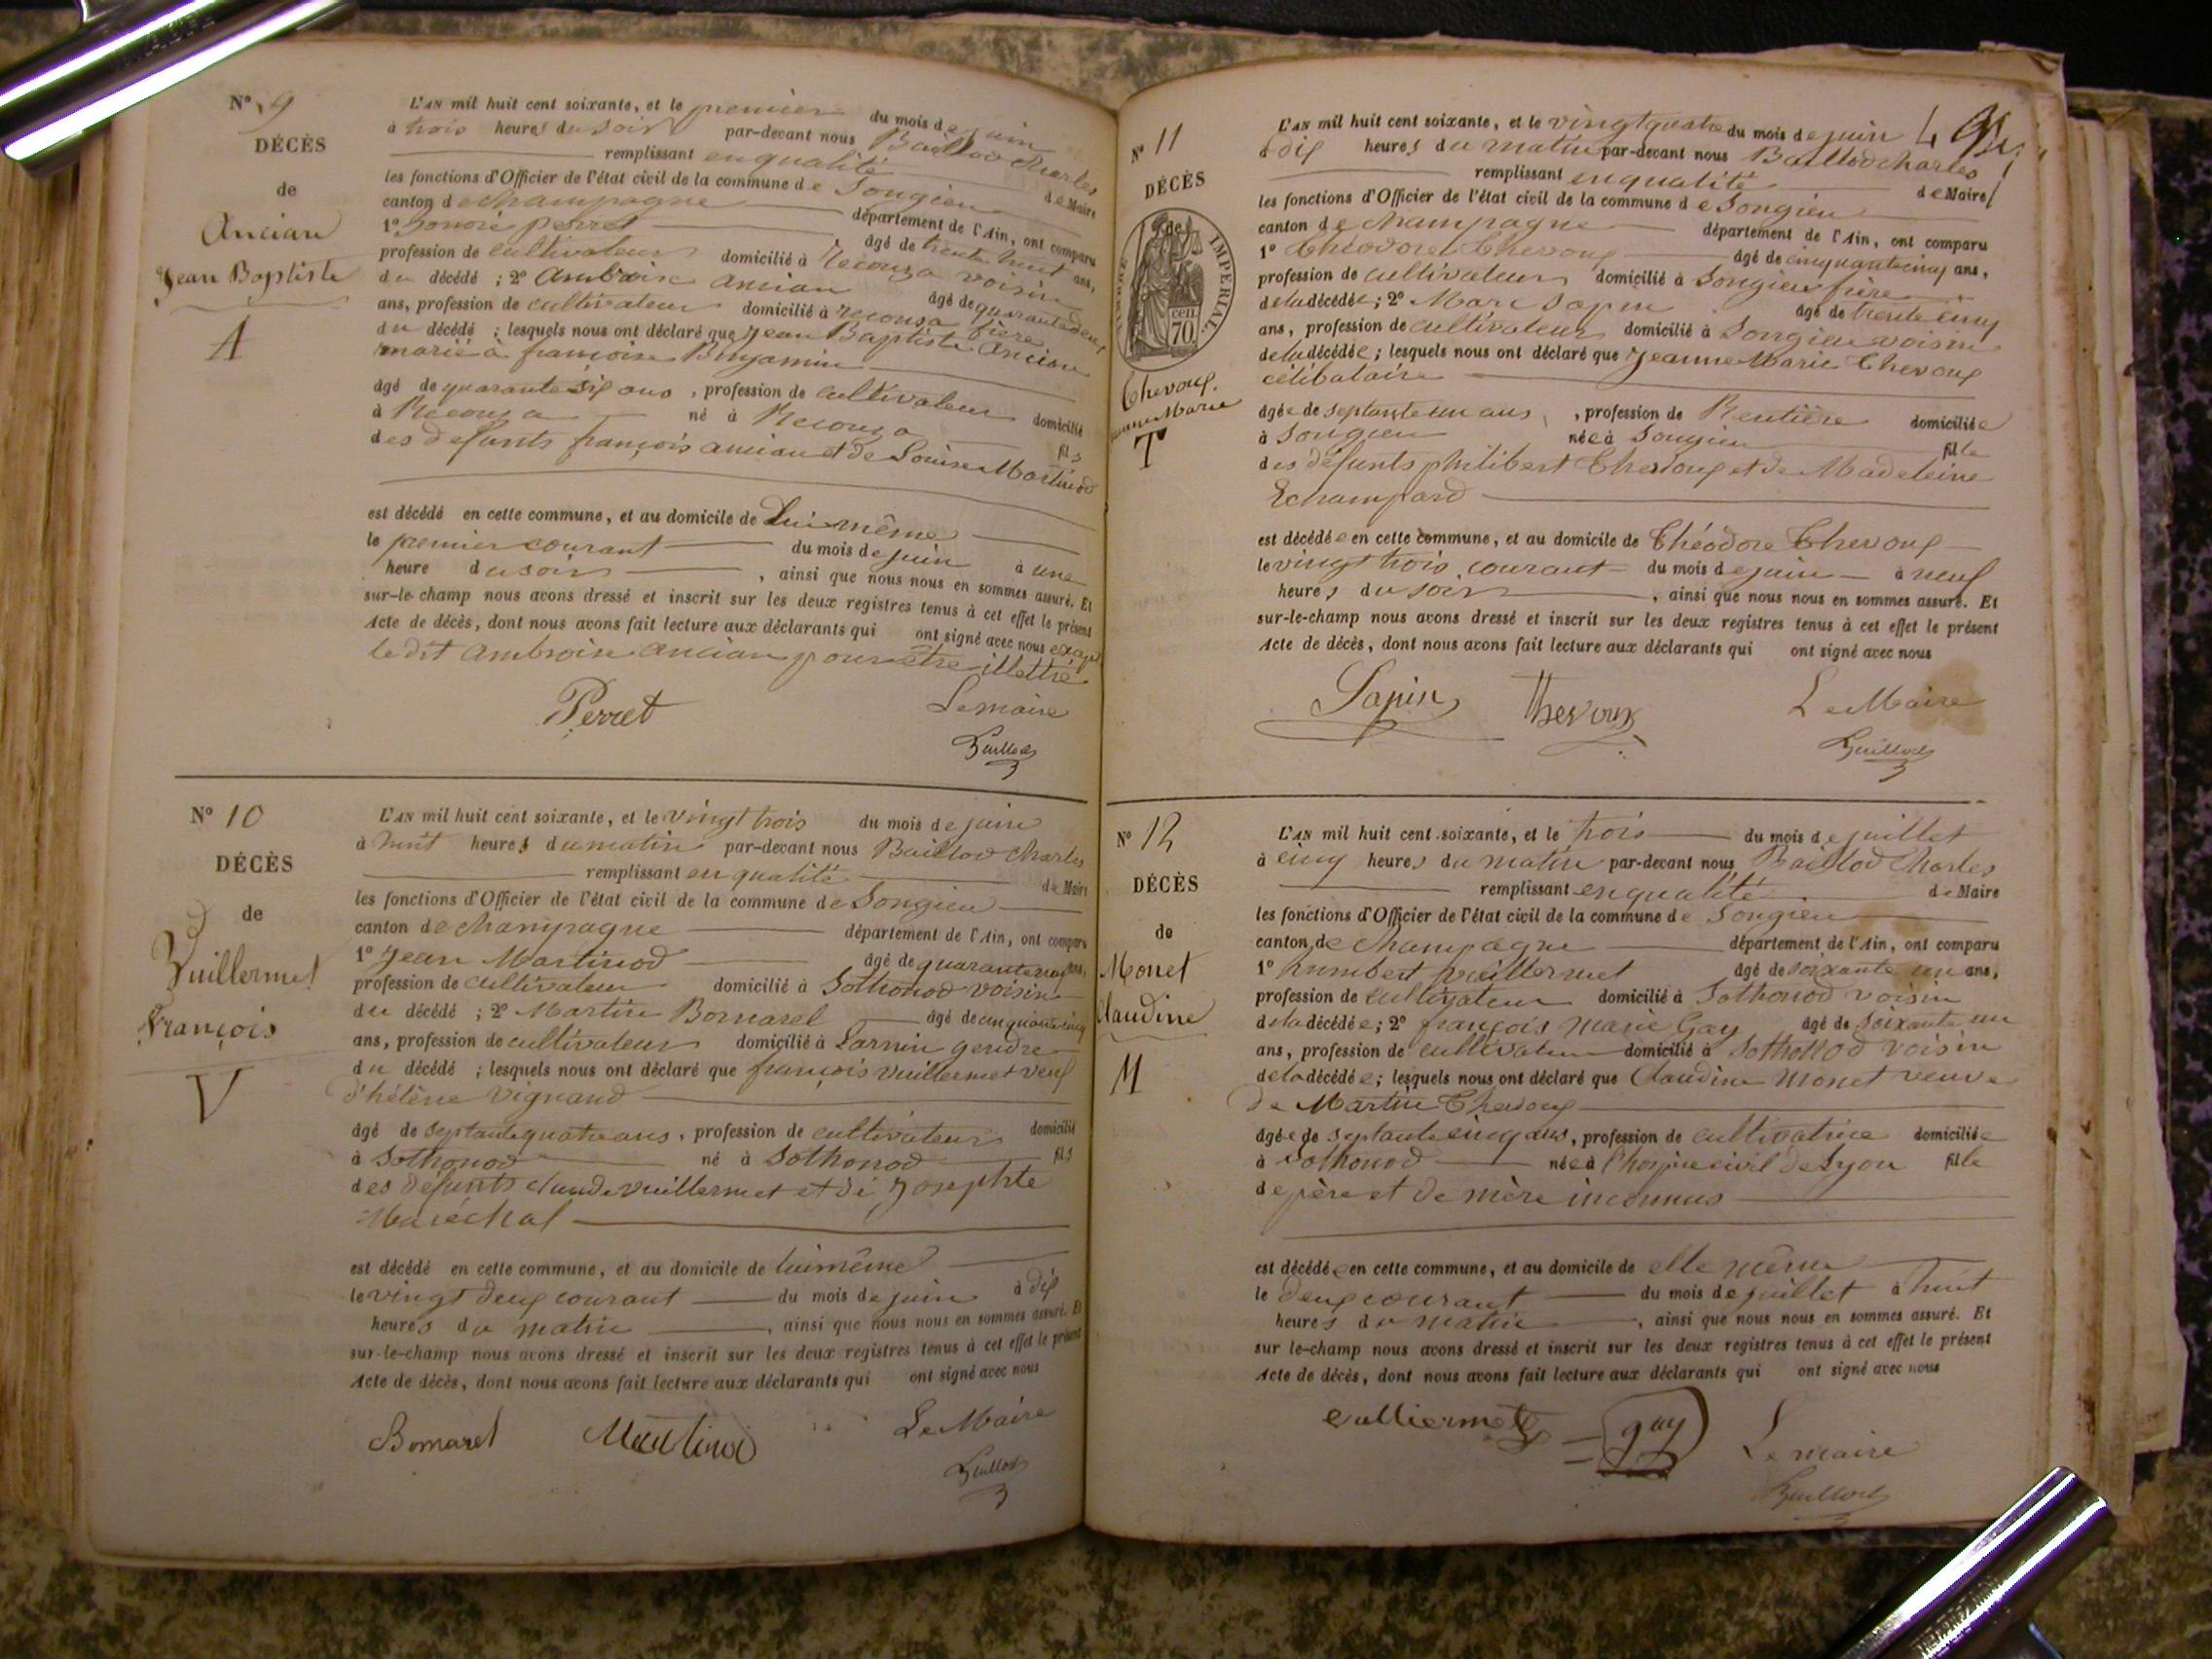 N° 9
DÉCÈS
de
Ancian
Jean Baptiste
A
L'AN mil huit cent soixante, et le premier du mois de juin
à trois heures du soir par-devant nous Baillod Charles
remplissant en qualité de Maire
les fonctions d'Officier de l'état civil de la commune de Songieu
canton de Champagne département de l'Ain, ont comparu
1° honoré perret âgé de trente huit ans,
profession de cultivateur domicilié à recouza voisin
du décédé ; 2° Ambroise ancian âgé de quarante deux
ans, profession de cultivateur domicilié à recouza frère
du décédé ; lesquels nous ont déclaré que Jean Baptiste Ancian
marié à françoise Benjamin
âgé de quarante six ans, profession de cultivateur domicilié
à Recouza né à Recouza fils
des défunts françois ancian et de Louise Martinod
est décédé en cette commune, et au domicile de Lui même
le premier courant du mois de juin à une
heure du soir, ainsi que nous nous en sommes assuré. Et
sur-le-champ nous avons dressé et inscrit sur les deux registres tenus à cet effet le présent
Acte de décès, dont nous avons fait lecture aux déclarants qui ont signé avec nous
le dit ambroise ancian pour être illettré
Perret Le maire
Baillod
N° 10
DÉCÈS
de
Vuillermet
François
V
L'AN mil huit cent soixante, et le vingt trois du mois de juin
à huit heures du matin par-devant nous Baillod Charles
remplissant en qualité de Maire
les fonctions d'Officier de l'état civil de la commune de Songieu
canton de Champagne département de l'Ain, ont comparu
1° Jean Martinod âgé de quarante ans,
profession de cultivateur domicilié à Sothonod voisin
du décédé ; 2° Martin Bornarel âgé de cinquante cinq
ans, profession de cultivateur domicilié à Larnin gendre
du décédé ; lesquels nous ont déclaré que françois vuillermet veuf
d'hélène vignand
âgé de septante quatre ans, profession de cultivateur domicilié
à Sothonod né à Sothonod fils
des défunts claude vuillermet et de Josephte
Maréchal
est décédé en cette commune, et au domicile de lui même
le vingt deux courant du mois de juin à dix
heures du matin, ainsi que nous nous en sommes assuré. Et
sur-le-champ nous avons dressé et inscrit sur les deux registres tenus à cet effet le présent
Acte de décès, dont nous avons fait lecture aux déclarants qui ont signé avec nous
Bornarel Martinod Le Maire
Baillod
N° 11
DÉCÈS
de
TIMBRE IMPÉRIAL
70 cen
Chevoux
Jeanne Marie
T
L'AN mil huit cent soixante, et le vingt quatre du mois de juin
à dix heures du matin par-devant nous Baillod charles
remplissant en qualité de Maire
les fonctions d'Officier de l'état civil de la commune de Songieu
canton de Champagne département de l'Ain, ont comparu
1° Théodore Thevoux âgé de cinquante cinq ans,
profession de cultivateur domicilié à Songieu frère
de la décédée ; 2° Marc Sapin âgé de trente cinq
ans, profession de cultivateur domicilié à Songieu voisin
de la décédée ; lesquels nous ont déclaré que Jeanne Marie Thevoux
célibataire
âgée de septante un ans, profession de Rentière domiciliée
à Songieu née à Songieu fille
des défunts philibert Thevoux et de Madeleine
Echampard
est décédée en cette commune, et au domicile de Théodore Thevoux
le vingt trois courant du mois de juin à neuf
heures du soir, ainsi que nous nous en sommes assuré. Et
sur-le-champ nous avons dressé et inscrit sur les deux registres tenus à cet effet le présent
Acte de décès, dont nous avons fait lecture aux déclarants qui ont signé avec nous
Sapin Thevoux Le Maire
Baillod
N° 12
DÉCÈS
de
Monet
Claudine
M
L'AN mil huit cent soixante, et le trois du mois de juillet
à cinq heures du matin par-devant nous Baillod Charles
remplissant en qualité de Maire
les fonctions d'Officier de l'état civil de la commune de Songieu
canton de Champagne département de l'Ain, ont comparu
1° humbert vuillermet âgé de soixante un ans,
profession de cultivateur domicilié à Sothonod voisin
de la décédée ; 2° françois marie Gay âgé de soixante un
ans, profession de cultivateur domicilié à Sothonod voisin
de la décédée ; lesquels nous ont déclaré que Claudine Monet veuve
de Martin Thevoux
âgée de septante cinq ans, profession de cultivatrice domiciliée
à Sothonod née à l'hospice civil de Lyon fille
de père et de mère inconnus
est décédée en cette commune, et au domicile de elle même
le deux courant du mois de juillet à huit
heures du matin, ainsi que nous nous en sommes assuré. Et
sur le-champ nous avons dressé et inscrit sur les deux registres tenus à cet effet le présent
Acte de décès, dont nous avons fait lecture aux déclarants qui ont signé avec nous
vulliermet gay Le maire
Baillod